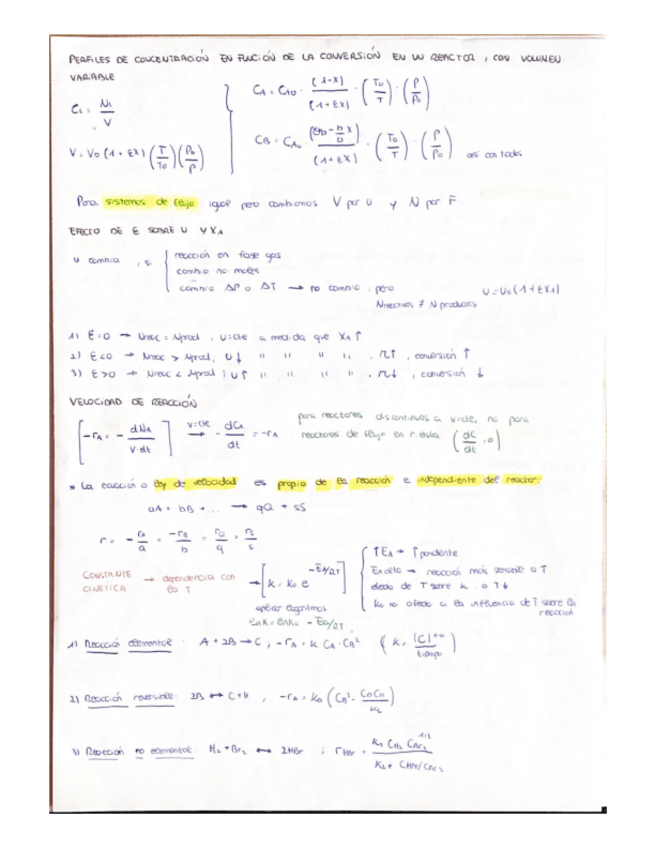 PERFILES DE CONCENTRACIÓN EN FUNCIÓN DE LA CONVERSIÓN EN UN REACTOR, CON VOLUMEN
VARIABLE
Ci = Ni / V
V = V0 (1 + εX) (T/T0) (P0/P)
CA = CA0 · (1-X)/(1+εX) · (T0/T) · (P/P0)
CB = CA0 · (θb - b/a X)/(1+εX) · (T0/T) · (P/P0) así con todos
Para sistemas de flujo igual pero cambiamos V por U y N por F.
EFECTO DE ε SOBRE U Y XA
U cambia, si
reacción en fase gas
cambio no moles
cambio ΔP o ΔT → no cambio, pero
Nreactivos ≠ Nproductos
U = U0 (1 + εXA)
1) ε=0 → Nreac = Nprod, U=cte a medida que XA ↑
2) ε<0 → Nreac > Nprod, U↓ " " " ", ↑, conversión ↑
3) ε>0 → Nreac < Nprod, U↑ " " " ", ↓, conversión ↓
VELOCIDAD DE REACCIÓN
[-rA = - dNA / V·dt] V=cte → - dCA/dt = -rA
para reactores discontinuos a V=cte, no para
reactores de flujo en r.esta. (dC/dt = 0)
* La ecuación o ley de velocidad es propia de la reacción e independiente del reactor:
aA + bB + ... → qQ + sS
r = - rA/a = -rB/b = rQ/q = rS/s
CONSTANTE CINÉTICA → dependencia con la T
→ [k = k0 e^(-EA/RT)]
aplicar logaritmos
LnK = LnK0 - Ea/RT
↑EA → ↑ pendiente
EA alta → reacción más sensible a T
efecto de T sobre k a T↓
k0 no afecta a la influencia de T sobre la
reacción
1) Reacción elemental: A + 2B → C, -rA = k CA · CB² (k = [C]^(1-n) / tiempo)
2) Reacción reversible: 2B ↔ C+H, -rA = kA (CB² - CC CH / KC)
3) Reacción no elemental: H2 + Br2 ↔ 2HBr ; rHBr = K1 CH2 CBr2^1/2 / K2 + CHBr/CBr2